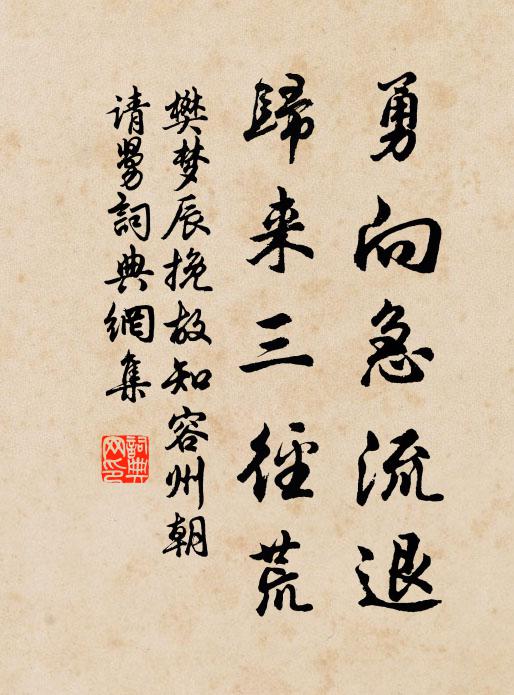 勇向急流退
歸来三徑荒
樊梦辰挽故知容州朝
请勇詞典網集
詞典
网印